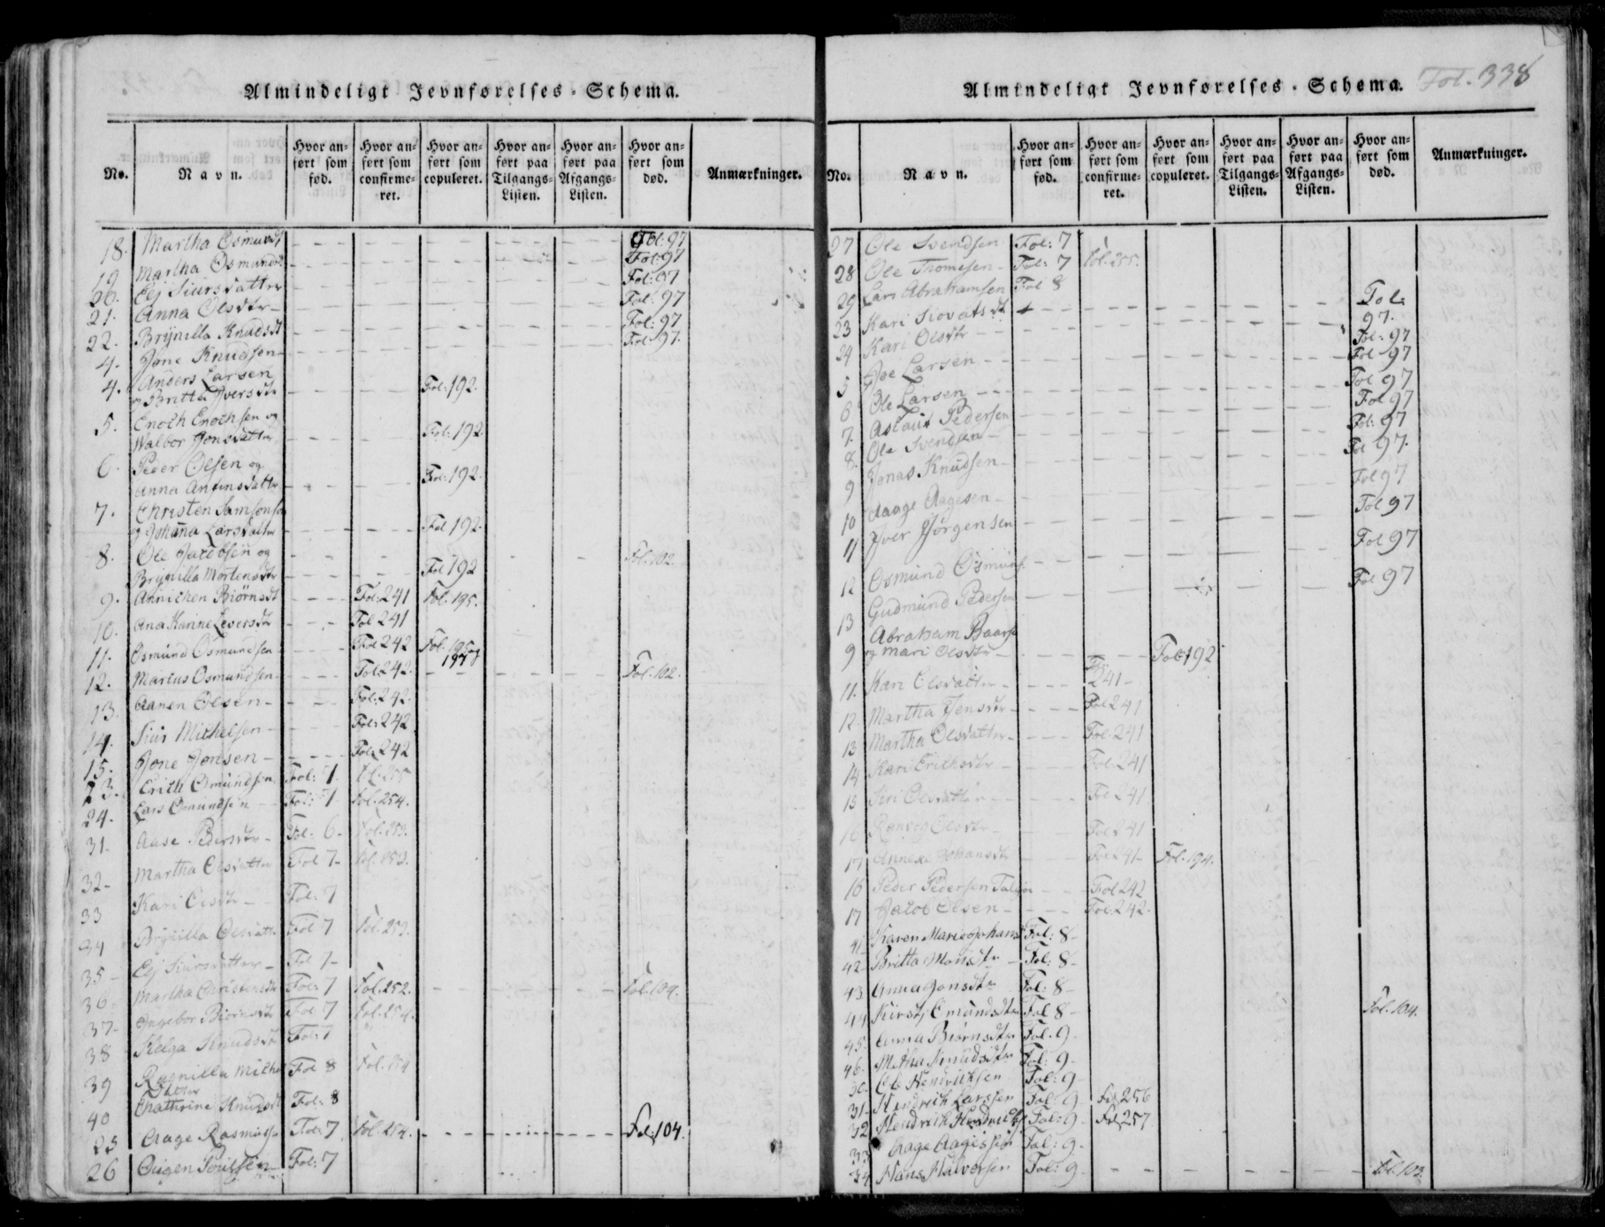 Almindeligt Jevnførelses-Schema.
No. Navn. Hvor anført som fød. Hvor anført som confirmeret. Hvor anført som copuleret. Hvor anført paa Tilgangs-Listen. Hvor anført paa Afgangs-Listen. Hvor anført som død. Anmærkninger.
18. Martha Osmundsdt Fol: 97
19 Martha Osmundsdt Fol: 97
20. Elj Siursdatter Fol: 97
21. Anna Olsdtr Fol: 97
22. Brynilla Knudsdt Fol: 97
4. Jone Knudsen Fol: 97
4. Anders Larsen
og Britta Iversdtr Fol: 192
5. Enoch Enochsen og
Walbor Jonsdatter Fol: 192
6. Peder Olsen og
Anna Antonsdatter Fol: 192
7. Christen Samsonsen
og Johanna Larsdatter Fol 192
8. Ole Jacobsen og Fol: 102.
Brynilla Mortensdtr Fol 192
9. Annichen Biørnsdt Fol: 241 Fol: 195.
10. Ana Karine Leversdtr Fol 241
11. Osmund Osmundsen Fol 242 Fol: 195 og
197
12. Marcus Osmundsen Fol 242 Fol. 102.
13. Aanen Olsen Fol: 242
14. Siur Michelsen Fol: 242
15. Jone Jonsen Fol: 242
23. Erich Omundsen Fol: 1 Fol: 255
24. Lars Omundsen Fol: 1 Fol. 254.
31. Aase Pedersdtr Fol: 6 Fol: 253.
32. Martha Olsdatter Fol 7 Fol. 253.
33 Kari Olsdtr Fol: 7
34 Brynilla Olsdattr Fol 7 Fol. 253.
35 Elj Siursdatter Fol 7
36 Martha Christensdtr Fol: 7 Fol. 252. Fol. 104.
37 Ingebor Biørnsdtr Fol 7 Fol. 254.
38 Helga Knudsdtr Fol: 7
39 Ragnilla Michels
datter Fol 8 Fol. 254
40 Chathrine Knudsdt Fol: 8
25 Aage Rasmusen Fol: 7 Fol 254. Fol 104.
26 Fol: 7
Almindeligt Jevnførelses-Schema. Fol. 338
No. Navn. Hvor anført som fød. Hvor anført som confirmeret. Hvor anført som copuleret. Hvor anført paa Tilgangs-Listen. Hvor anført paa Afgangs-Listen. Hvor anført som død. Anmærkninger.
27 Ole Svendsen Fol: 7
28 Ole Thomesen Fol: 7 Fol. 255.
29 Lars Abrahamsen Fol 8
23 Kari Siovatsdt Fol:
97.
24 Kari Olsdtr Fol: 97
5 Joe Larsen Fol 97
6 Ole Larsen Fol 97
7. Aslaus Pedersen Fol 97
8. Ole Svendsen Fol: 97
9 Jonas Knudsen Fol 97
10 Aage Aagesen Fol 97
11 Iver Jørgensen Fol 97
12 Osmund Osmunds. Fol 97
13 Gudmund Pedersen Fol 97
9 Abraham Baarse
og Mari Olsdtr Fol 192
11. Kari Olsdatter Fol: 241
12 Martha Jensdtr Fol 241
13 Martha Olsdatter Fol: 241
14 Kari Erichsdtr Fol: 241
15 Siri Olsdatter Fol 241
16 Ranvey Olsdtr Fol 241
17 Johansdt Fol 241 Fol. 194.
16 Peder Pedersen Fol 242
17 Jacob Olsen Fol: 242
41 Karen Marie Johans Fol: 8
42 Britta Monsdtr Fol: 8
43 Anna Jonsdtr Fol: 8
44 Kirstj Omundsdtr Fol 8 Fol. 104.
45 Anna Biørnsdtr Fol: 9
46. Metha Knudsdtr Fol: 9
30 Ole Henrichsen Fol: 9
31 Hendrich Larssen Fol: 9 Fol 256
32 Hendrich Fol: 9 Fol 257
33 Aage Aagessen Fol: 9
34 Hans Halvorsen Fol: 9 Fol. 103.